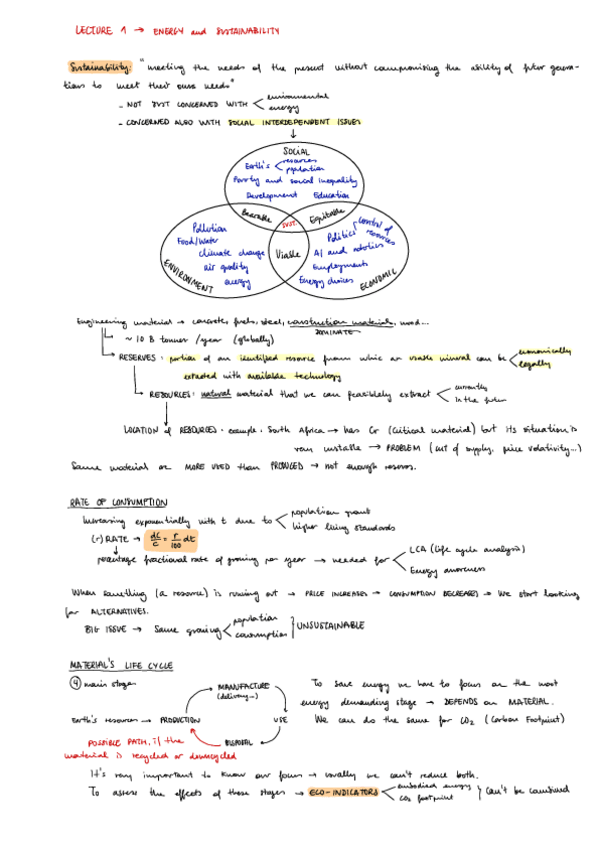 LECTURE 1 → ENERGY and SUSTAINABILITY
Sustainability: "meeting the needs of the present without compromising the ability of futur genera-
tions to meet their own needs"
- NOT JUST CONCERNED WITH < environmental
energy
- CONCERNED ALSO WITH SOCIAL INTERDEPENDENT ISSUES
SOCIAL
Earth's < resources
population
Poverty and social inequality
Development Education
Bearable SUST. Equitable
Pollution
Food/Water
climate change
air quality
energy
ENVIRONMENT
Viable
Politics control of
resources
AI and robotics
Employments
Energy choices
ECONOMIC
Engineering material → concrete, fuels, steel, construction materials, wood...
DOMINATE
~ 10 B tonner /year (globally)
RESERVES: portion of an identified resource from which an usable mineral can be < economically
legally
extracted with available technology
RESOURCES: natural material that we can feasiblely extract < currently
in the futur
LOCATION of RESOURCES. example. South Africa → has Cr (critical material) but its situation is
very unstable → PROBLEM (cut of supply, price volativity...)
Some material are MORE USED than PRODUCED → not enough reserves.
RATE OF CONSUMPTION
Increasing exponentially with t due to < population growt
higher living standards
(r) RATE → dC/C = r/100 dt
percentage fractional rate of growing per year → needed for < LCA (life cycle analysis)
Energy awareness
When something (a resource) is running out → PRICE INCREASES → CONSUMPTION DECREASES → We start looking
for ALTERNATIVES.
BIG ISSUE → Some growing < population
consumption } UNSUSTAINABLE
MATERIAL'S LIFE CYCLE
④ main stages
MANUFACTURE
(delivery...)
Earth's resources → PRODUCTION USE
DISPOSAL
POSSIBLE PATH, if the
material is recycled or downcycled
To save energy we have to focus on the most
energy demanding stage → DEPENDS on MATERIAL.
We can do the same for CO₂ (Carbon Footprint)
It's very important to know our focus → usually we can't reduce both.
To assess the effects of these stages → ECO-INDICATORS < embodied energy
CO₂ footprint } can't be combined